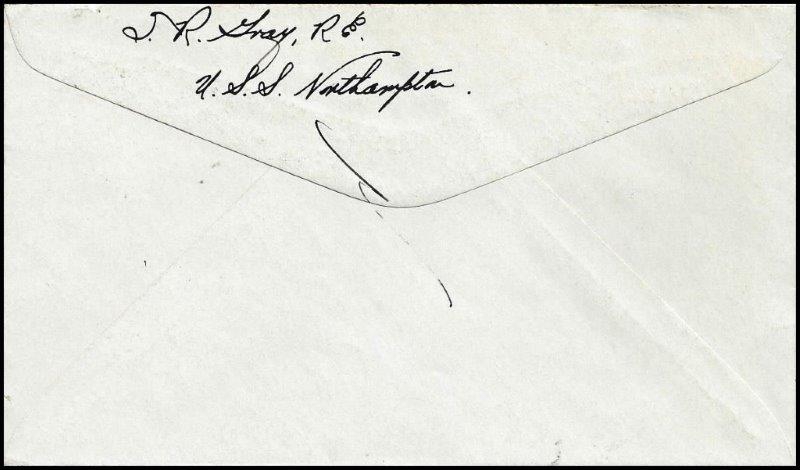 J. R. Gray, R.E.
U.S.S. Northampton.